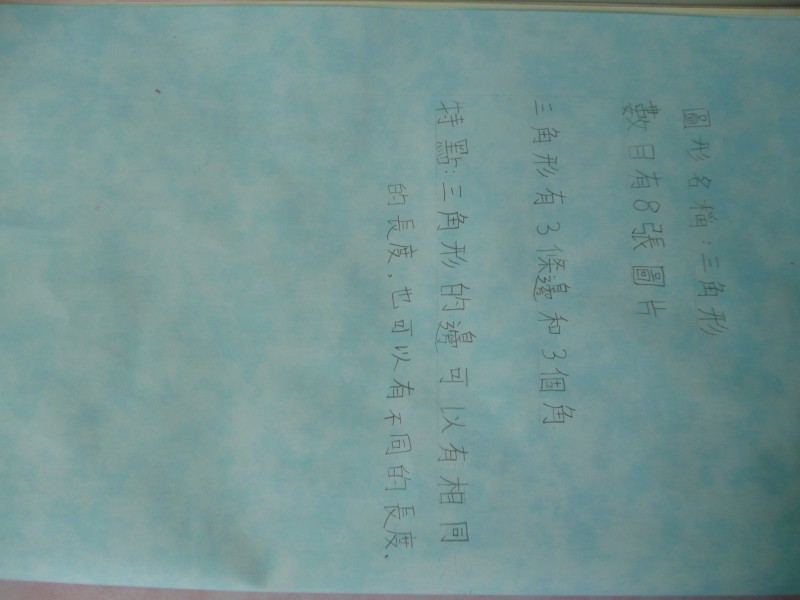 圖形名稱:三角形
數目有8張圖片
三角形有3條邊和3個角
特點:三角形的邊可以有相同
的長度、也可以有不同的長度、